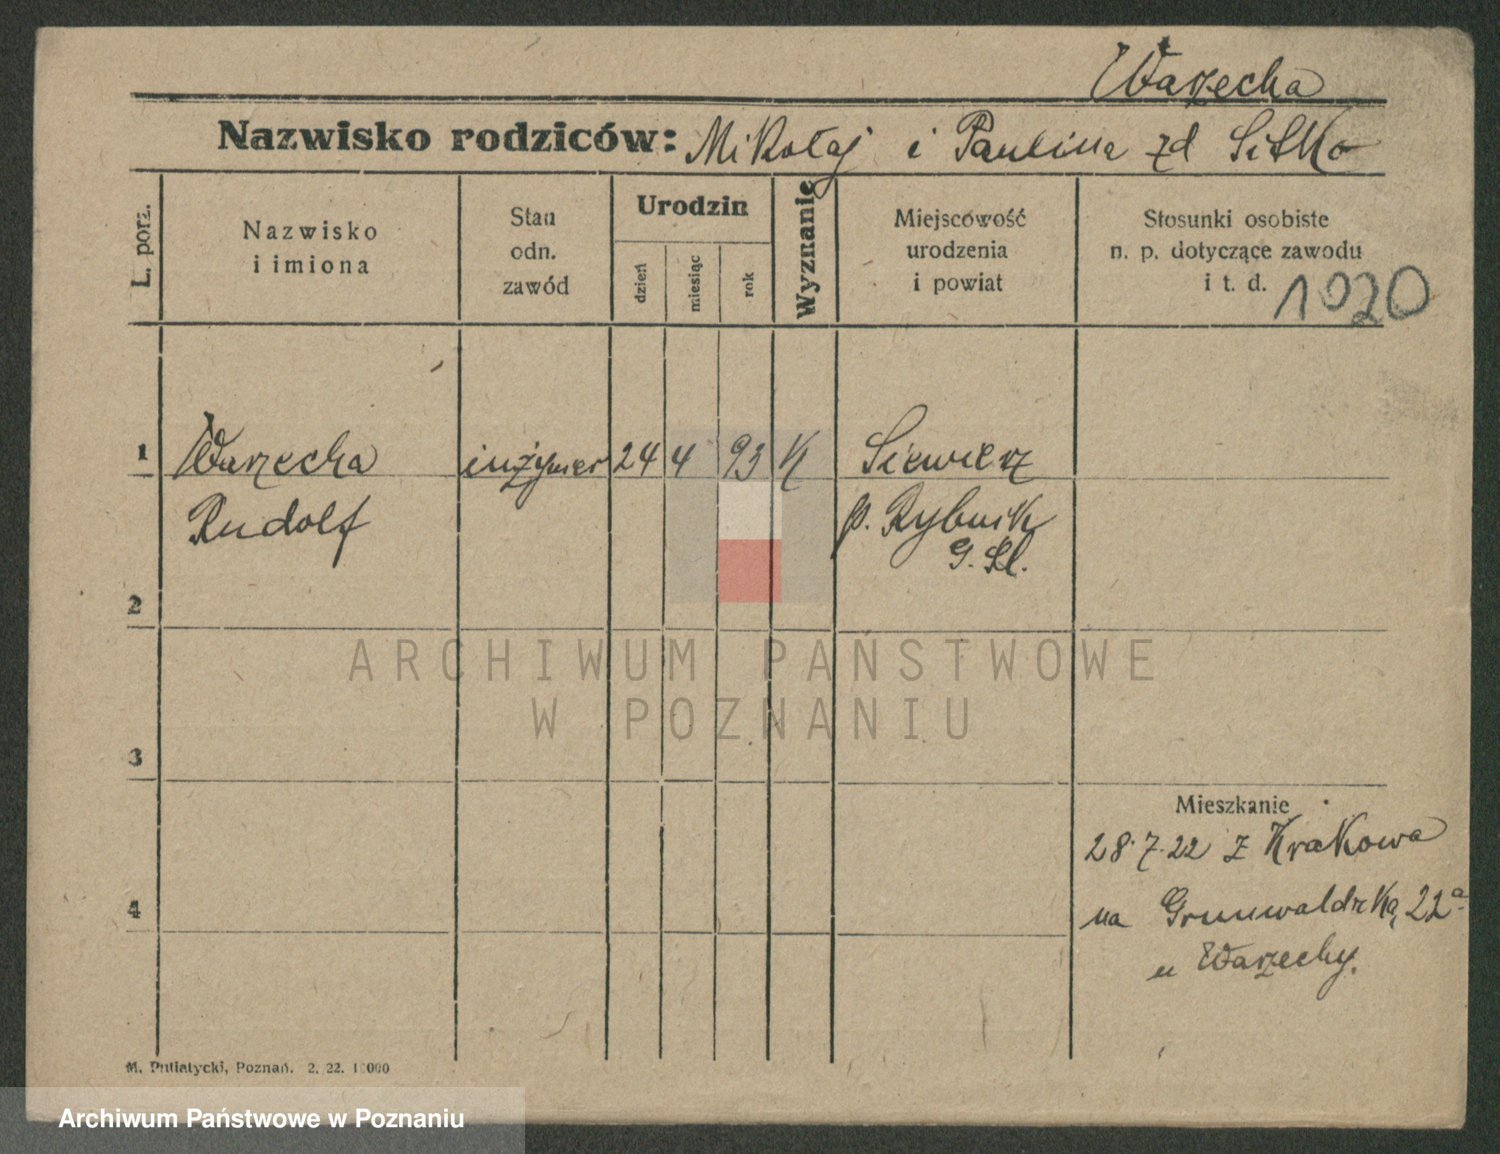 Warzecha
Nazwisko rodziców: Mikołaj i Paulina zd Sitko
L. porz.
Nazwisko
i imiona
Stan
odn.
zawód
Urodzin
dzień
miesiąc
rok
Wyznanie
Miejscowość
urodzenia
i powiat
Stosunki osobiste
n. p. dotyczące zawodu
i t. d.
1020
1
Warzecha
inżynier
24
4
93
K
Siewierz
Rudolf
p. Rybnik
G. Śl.
2
3
4
Mieszkanie
28.7.22 z Krakowa
na Grunwaldzką 22a
u Warzechy.
M. Putiatycki, Poznań. 2. 22. 10000
ARCHIWUM PAŃSTWOWE
W POZNANIU
Archiwum Państwowe w Poznaniu